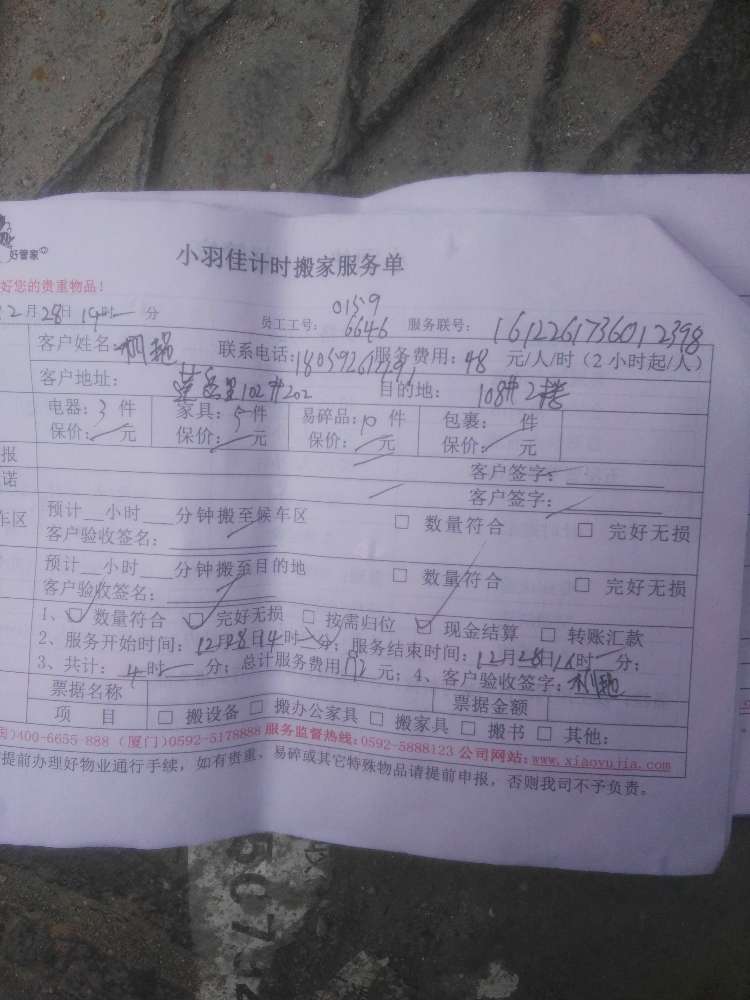 好管家
小羽佳计时搬家服务单
好您的贵重物品！
12月28日14时 分
员工工号： 0159 6646 服务联号： 1612261736012398
客户姓名： 联系电话： 服务费用：48 元/人/时（2小时起/人）
客户地址： 里102#202 目的地： 108#2楼
电器：3件 家具：5件 易碎品：10件 包裹： 件
保价： 元 保价： 元 保价： 元 保价： 元
报 客户签字：
诺 客户签字：
车区 预计__小时___分钟搬至候车区 □ 数量符合 □ 完好无损
客户验收签名：
预计__小时___分钟搬至目的地 □ 数量符合 □ 完好无损
客户验收签名：
1、☑ 数量符合 ☑ 完好无损 □ 按需归位 ☑ 现金结算 □ 转账汇款
2、服务开始时间：12月28日14时 分； 服务结束时间：12月28日16时 分；
3、共计：4时 分；总计服务费用 元；4、客户验收签字：
票据名称 票据金额
项 目 □ 搬设备 □ 搬办公家具 □ 搬家具 □ 搬书 □ 其他:
)400-6655-888 (厦门)0592-5178888 服务监督热线:0592-5888123 公司网站:www.xiaoyujia.com
提前办理好物业通行手续，如有贵重、易碎或其它特殊物品请提前申报，否则我司不予负责。